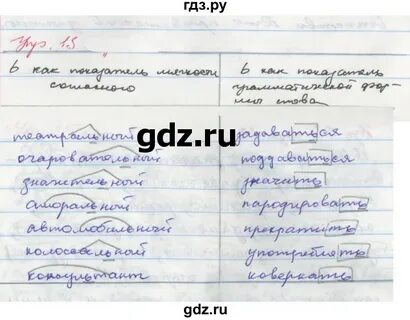 гдз.ру
Упр. 15
ь как показатель мягкости согласного
ь как показатель грамматической формы слова
театральный
задаваться
gdz.ru
очаровательный
поддаваться
значительный
значить
аморальный
пародировать
автомобильный
прекратить
колоссальный
употреблять
консультант
коверкать
gdz.ru